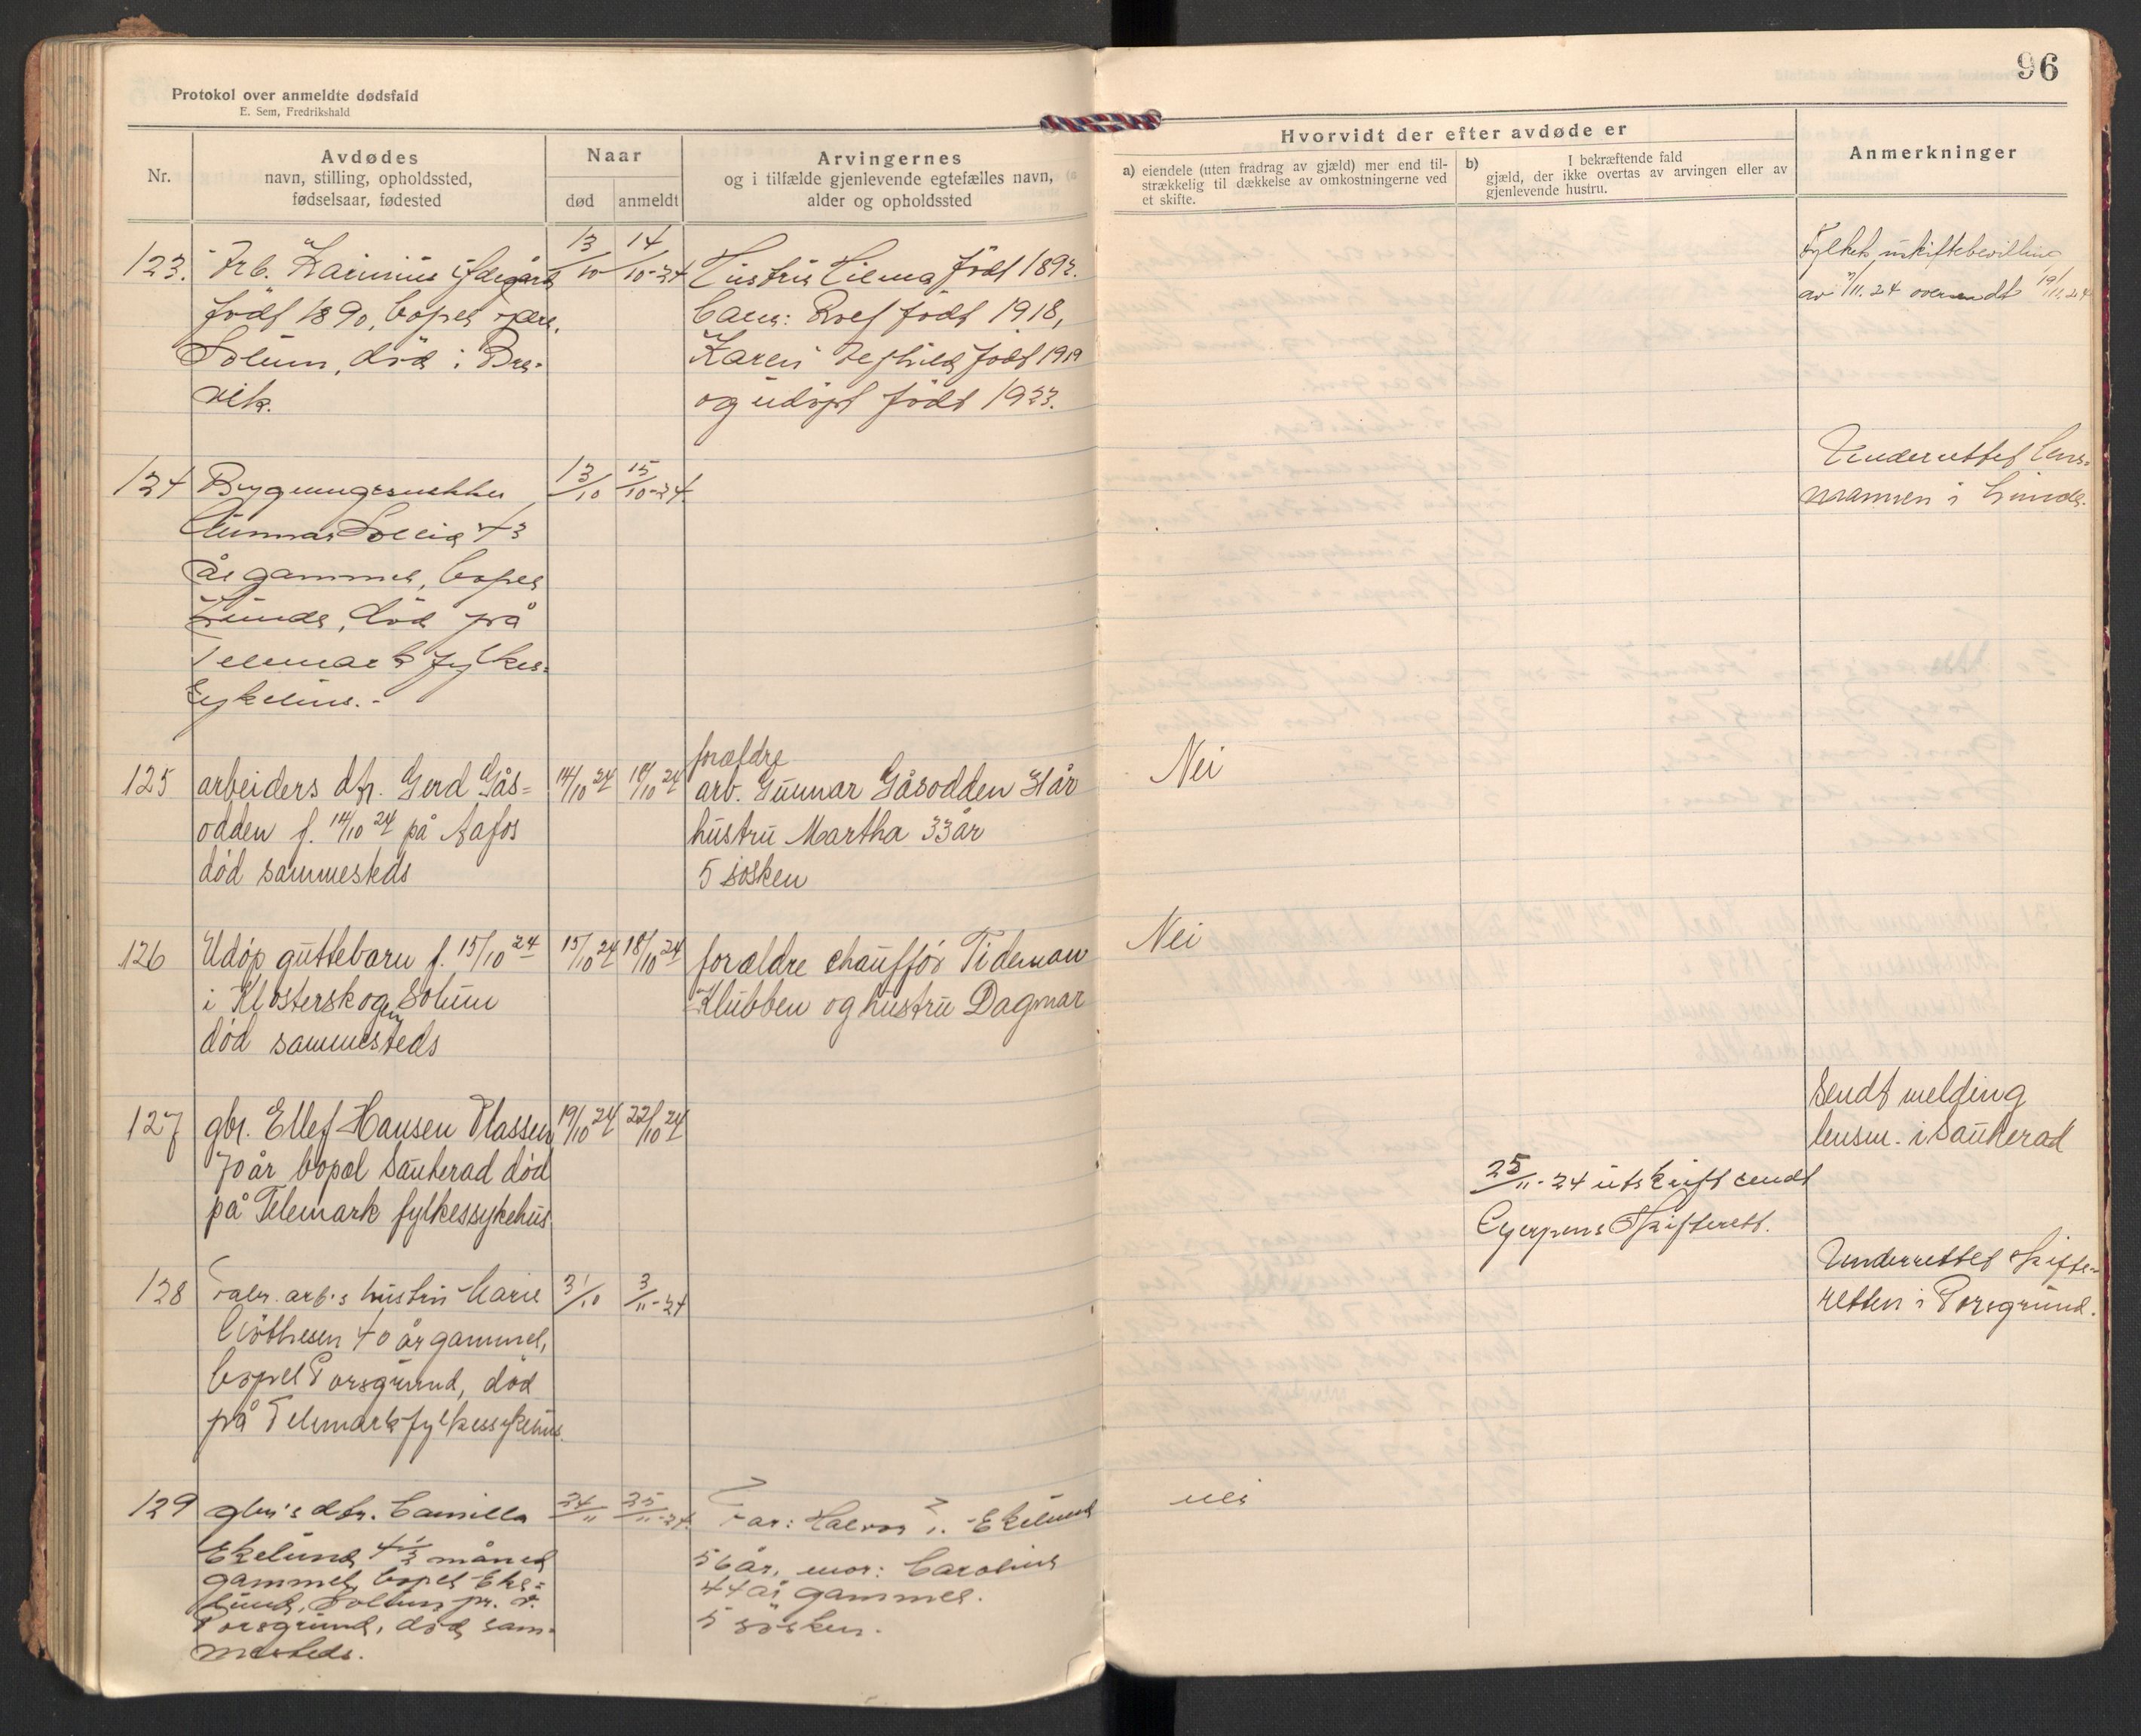 96
Protokol over anmeldte dødsfald
E. Sem, Fredrikshald
Nr.
Avdødes
navn, stilling, opholdssted,
fødselsaar, fødested
Naar
død
anmeldt
Arvingernes
og i tilfælde gjenlevende egtefælles navn,
alder og opholdssted
Hvorvidt der efter avdøde er
a) eiendele (uten fradrag av gjæld) mer end til-
strækkelig til dækkelse av omkostningerne ved
et skifte.
b) I bekræftende fald
gjæld, der ikke overtas av arvingen eller av
gjenlevende hustru.
Anmerkninger
123.
født 1890, bopel
Solum, død i Bre-
vik.
13/10
14/10-24
Hustru Hilma født 1892.
Barn: Rolf født 1918,
Karen født 1919
og udøpt født 1923.
Fylkets uskiftebevilling
av 7/11.24 oversendt 19/11.24
124
Bygningssnekker
Gunnar Solli 43
år gammel, bopel
Lunde, død på
Telemark fylkes-
sykehus.-
13/10
15/10-24.
Underrettet lens-
mannen i Lunde.
125
arbeiders dtr. Gerd Gås-
odden f. 14/10 24 på Aafos
død sammesteds
14/10 24
16/10 24
forældre
arb. Gunnar Gåsodden 31 år
hustru Martha 33 år
5 søsken
Nei
126
Udøp guttebarn f. 15/10 24
i Klosterskogen Solum
død sammesteds
15/10 24
18/10 24
forældre chauffør Tideman
Klubben og hustru Dagmar
Nei
127
gbr. Ellef Hansen Plassen
70 år bopel Sauherad død
på Telemark fylkessykehus
19/10 24
22/10 24
Sendt melding
lensm. i Sauherad
25/11-24 utskrift sendt
Gjerpens Skifterett.
128
Fabr. arb.s hustru Marie
40 år gammel,
bopel Porsgrund, død
på Telemark fylkessykehus.
31/10
3/11-24
Underrettet skifte-
retten i Porsgrund.
129
gbr's dtr. Camilla
Ekelund 4 1/2 måned
gammel, bopel Eke-
lund, Solum pr.
Porsgrund, død sam-
mesteds.
24/11
25/11-24.
Far: Halvor I. Ekelund
56 år, mor: Caroline
44 år gammel.
5 søsken.
nei